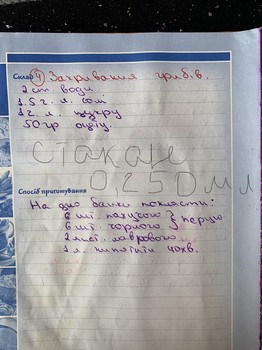 Склад 4) Закривання грибів.
2 ст. води
1.5 г. л. солі
1 г. л. цукру
50 гр оцту.
стакан
0,250 мл
Спосіб приготування
На дно банки покласти:
6 шт. пахучого } перцю
6 шт. чорного
2 лист. лаврового
1 л. кипятити 40хв.